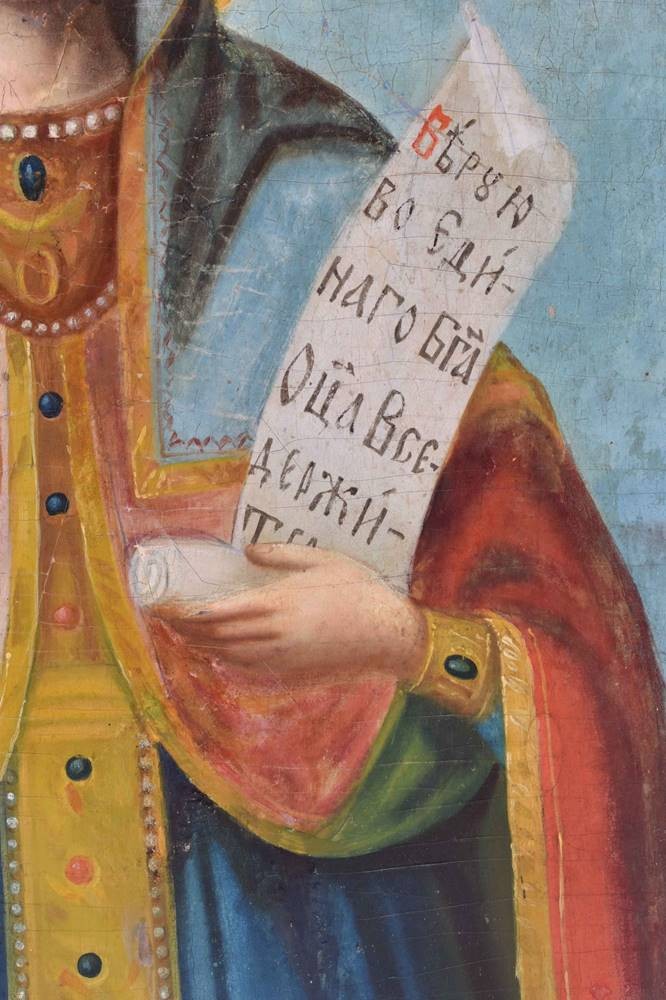 Вѣрꙋю
во Єди́-
наго Бг҃а
Оц҃а Все-
держи́-